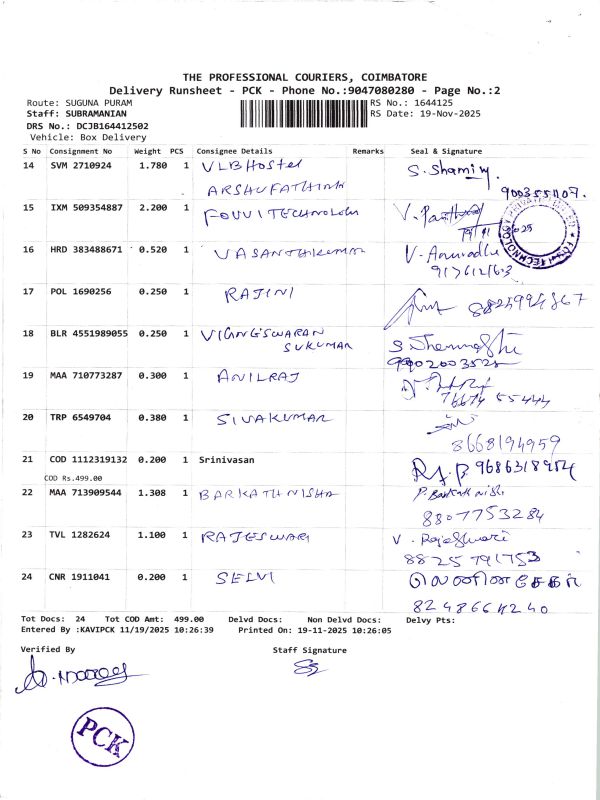 THE PROFESSIONAL COURIERS, COIMBATORE
Delivery Runsheet - PCK - Phone No.:9047080280 - Page No.:2
Route: SUGUNA PURAM RS No.: 1644125
Staff: SUBRAMANIAN RS Date: 19-Nov-2025
DRS No.: DCJB164412502
Vehicle: Box Delivery
S No Consignment No Weight PCS Consignee Details Remarks Seal & Signature
14 SVM 2710924 1.780 1 VLB Hostel S. Shamiy.
ARSHUFATHIMA
15 IXM 509354887 2.200 1 FOUVI TECHNOLOGY V.
19/11
16 HRD 383488671 0.520 1 VASANTHKUMAR V. Anuradha
17 POL 1690256 0.250 1 RAJINI 8825994867
18 BLR 4551989055 0.250 1 VIGNESWARAN S
SUKUMAR
9902003525
19 MAA 710773287 0.300 1 ANILRAJ
76674 55444
20 TRP 6549704 0.380 1 SIVAKUMAR
8668194959
21 COD 1112319132 0.200 1 Srinivasan 9686318954
COD Rs.499.00
22 MAA 713909544 1.308 1 BARKATH NISHA P. Barkath nisha
8807753284
23 TVL 1282624 1.100 1 RAJESWARI V. Rajeshwari
8825791753
24 CNR 1911041 0.200 1 SELVI
8248664240
Tot Docs: 24 Tot COD Amt: 499.00 Delvd Docs: Non Delvd Docs: Delvy Pts:
Entered By :KAVIPCK 11/19/2025 10:26:39 Printed On: 19-11-2025 10:26:05
Verified By Staff Signature
PCK